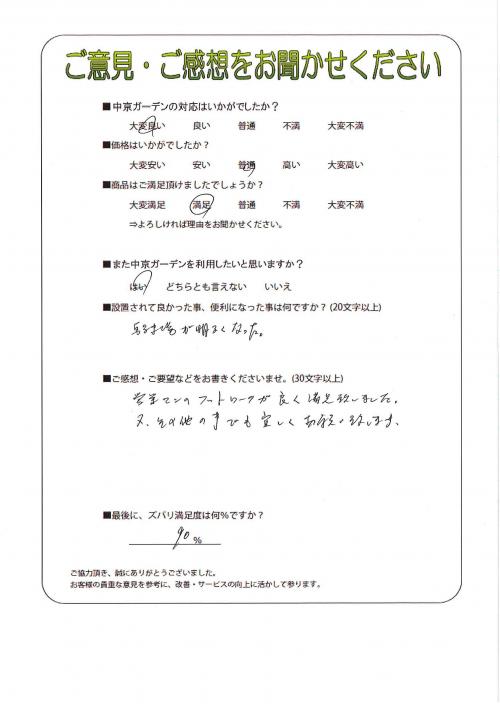 ご意見・ご感想をお聞かせください
■中京ガーデンの対応はいかがでしたか？
大変良い 良い 普通 不満 大変不満
■価格はいかがでしたか？
大変安い 安い 普通 高い 大変高い
■商品はご満足頂けましたでしょうか？
大変満足 満足 普通 不満 大変不満
⇒よろしければ理由をお聞かせください。
■また中京ガーデンを利用したいと思いますか？
はい どちらとも言えない いいえ
■設置されて良かった事、便利になった事は何ですか？(20文字以上)
駐車場が明るくなった。
■ご感想・ご要望などをお書きくださいませ。(30文字以上)
営業マンのフットワークが良く満足致しました。
又、その他の事でも宜しくお願い致します。
■最後に、ズバリ満足度は何％ですか？
90 ％
ご協力頂き、誠にありがとうございました。
お客様の貴重な意見を参考に、改善・サービスの向上に活かして参ります。